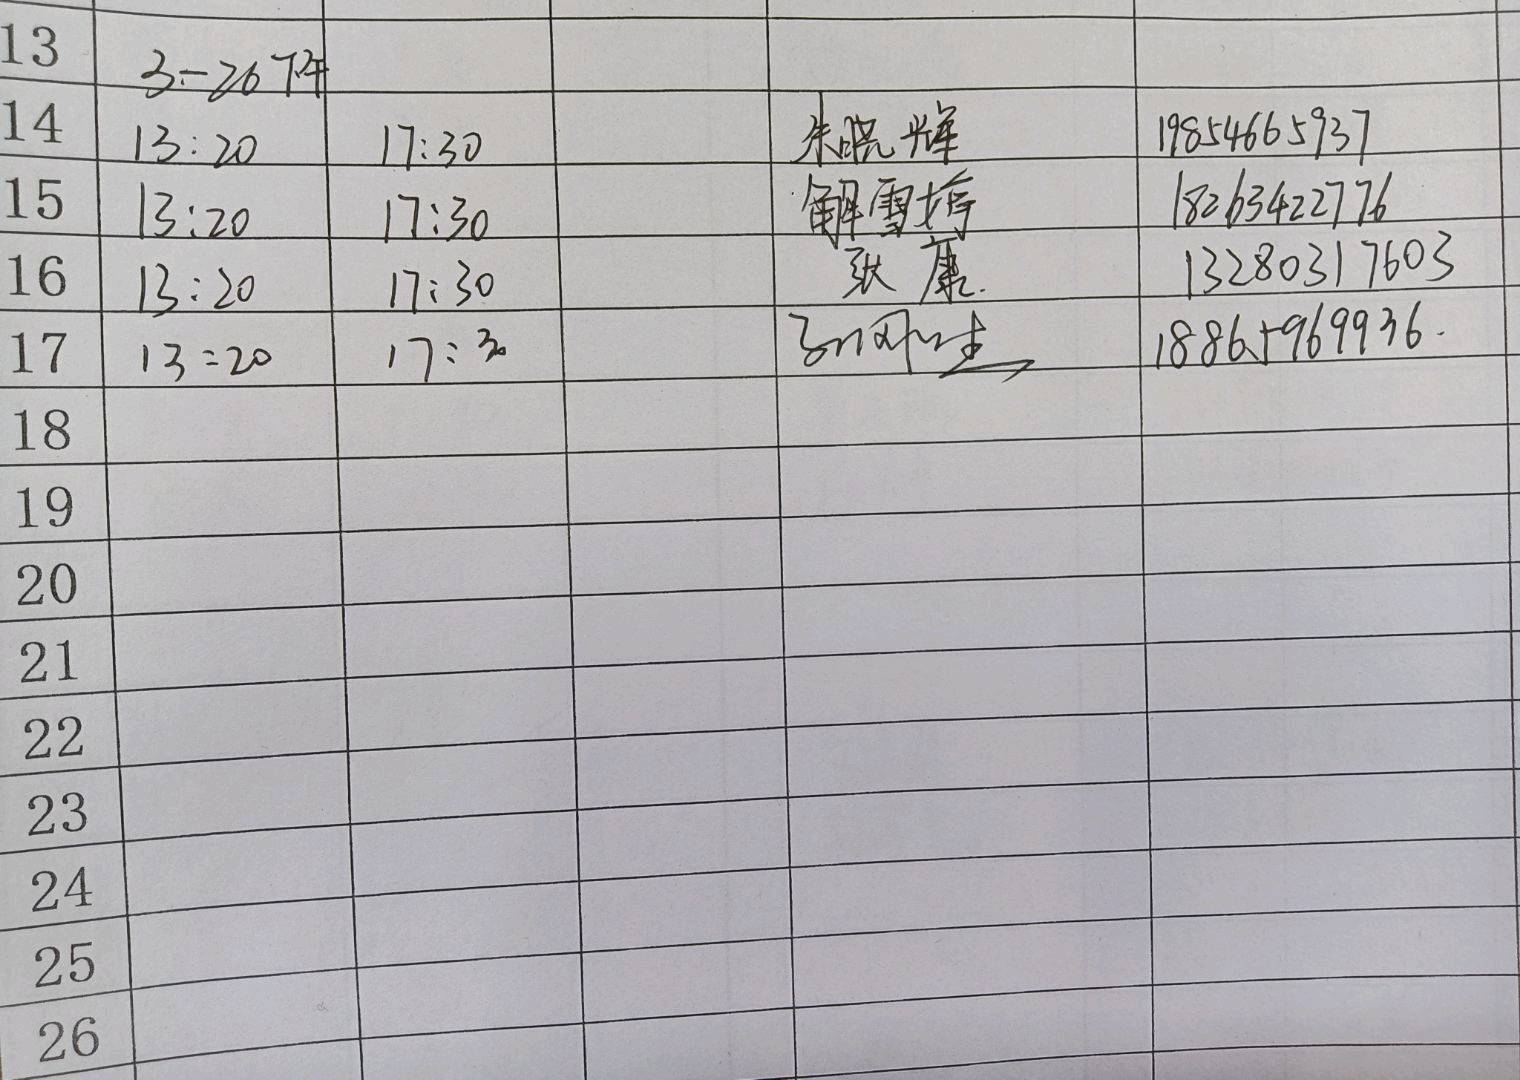 13 3-26下午
14 13:20 17:30 朱晓辉 19854665937
15 13:20 17:30 解雪婷 18263422776
16 13:20 17:30 张康. 13280317603
17 13:20 17:30 18865969936.
18
19
20
21
22
23
24
25
26